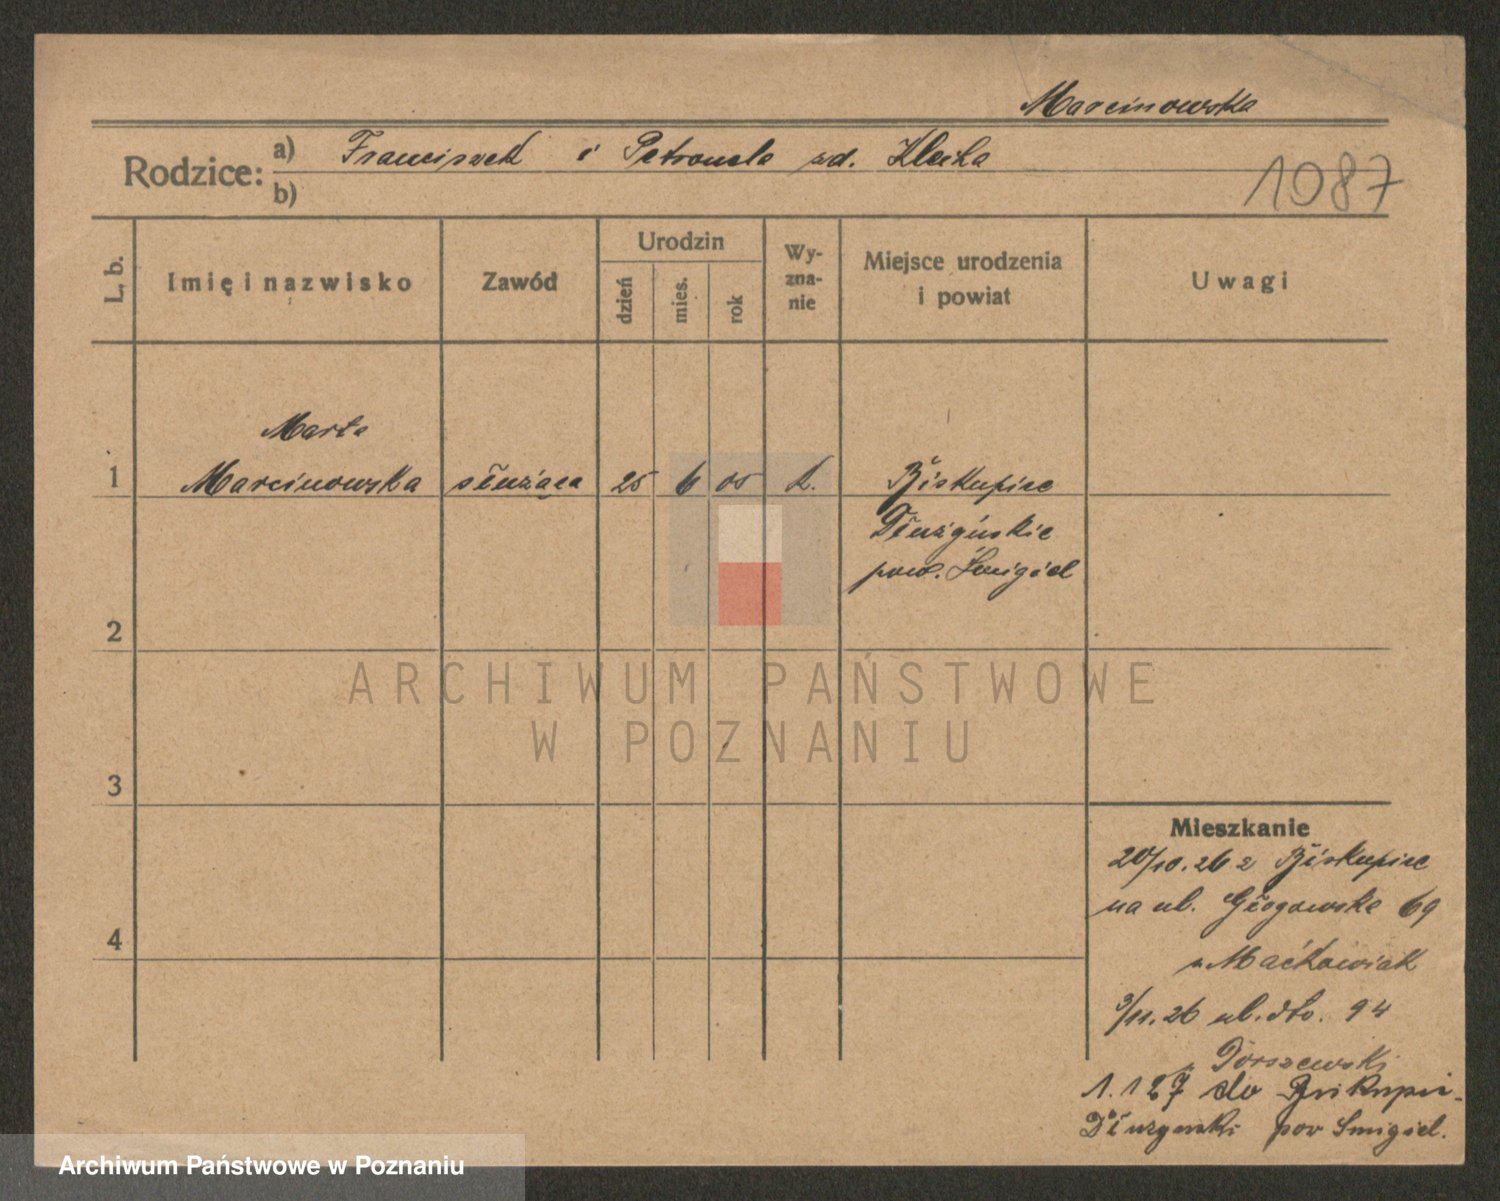 Marcinowska
Rodzice: a) Franciszek i Petronela zd. Klecha
b)
1087
L. b.
Imię i nazwisko
Zawód
Urodzin
dzień
mies.
rok
Wy-
zna-
nie
Miejsce urodzenia
i powiat
Uwagi
Marta
1 Marcinowska służąca 25 6 05 k. Biskupice
Dłużyńskie
pow. Śmigiel
2
3
4
Mieszkanie
20/10.26 z Biskupice
na ul. Głogowska 69
Maćkowiak
3/11.26 ul. dto. 94
1.1 27 do
pow Smigiel.
ARCHIWUM PAŃSTWOWE
W POZNANIU
Archiwum Państwowe w Poznaniu